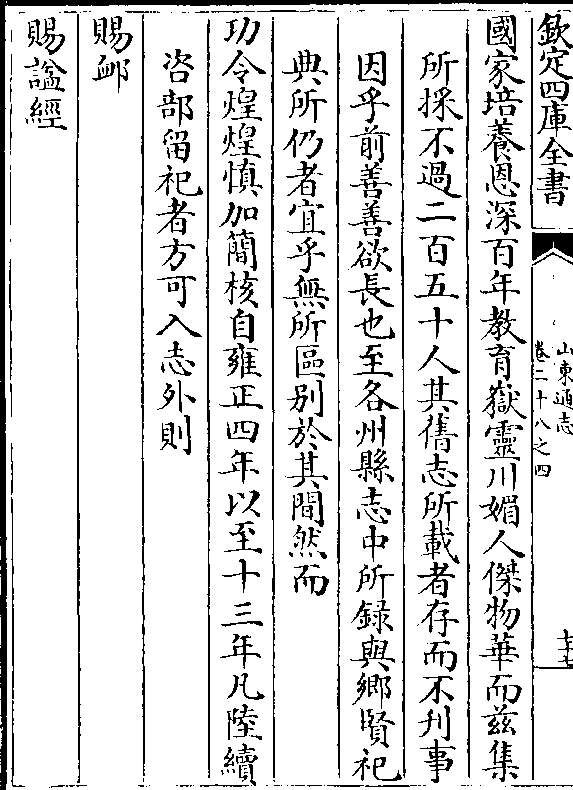 欽定四庫全書
山東通志
卷二十八之四
國家培養恩深百年教育嶽靈川媚人傑物華而茲集
所採不過二百五十人其舊志所載者存而不刋事
因乎前善善欲長也至各州縣志中所録與鄉賢祀
典所仍者宜乎無所區别於其間然而
功令煌煌慎加簡核自雍正四年以至十三年凡陸續
咨部留祀者方可入志外則
賜䘏
賜諡經